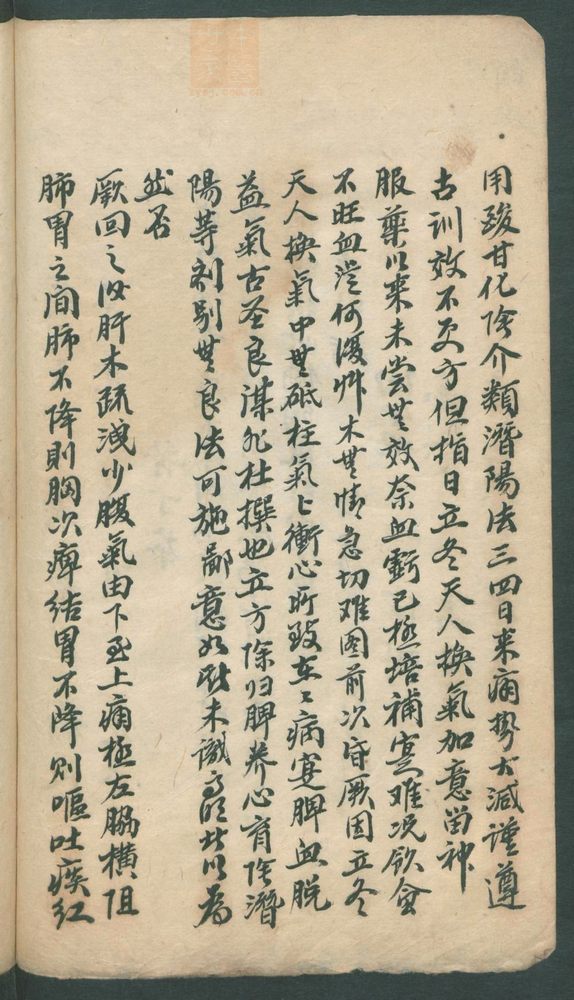 用酸甘化陰介類潛陽法三四日来痛勢大減謹遵
古訓效不更方但指日立冬天人換氣加意留神
服藥以来未嘗無效奈血虧已極培補寔难况飲食
不旺血從何復艸木無情急切难图前次昏厥因立冬
天人換氣中無砥柱氣上衝心所致立冬病寔脾血脱
益氣古圣良謀非杜撰也立方除归脾养心育陰潛
陽等剂别無良法可施鄙意如斯未識高明以為
然否
厥回之後肝木疏洩少腹氣由下至上痛極左脇橫阻
肺胃之间肺不降則胸次痺结胃不降则嘔吐痰红